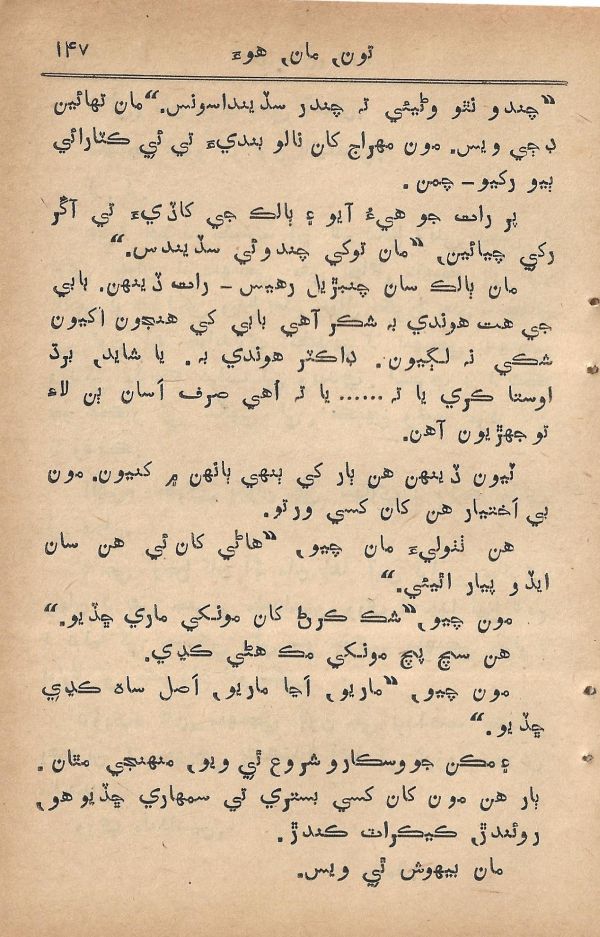 تون، مان، هوءَ ۱۴۷
“چندو نٿو وڻيئي تہ چندر سڏينداسونس.“ مان تهائين
ڊڄي ويس. مون مهراج کان نالو بنديءَ تي ئي ڪٽارائي
ٻيو رکيو – چمن.
پر رات جو هيءُ آيو ۽ ٻالڪ جي کاڏيءَ تي آڱر
رکي چيائين, “مان توکي چندو ئي سڏيندس.“
مان ٻالڪ سان چنبڙيل رهيس – رات ڏينهن. بابي
جي هت هوندي بہ شڪر آهي بابي کي هنجون اکيون
شڪي نہ لڳيون. ڊاڪٽر هوندي بہ. يا شايد, برڌ
اوستا ڪري يا تہ...... يا تہ اَهي صرف اَسان ٻن لاءِ
ٿو جهڙيون آهن.
ٽيون ڏينهن هن ٻار کي ٻنهي ٻانهن ۾ کنيون. مون
بي اَختيار هن کان کسي ورتو.
هن ٺٺوليءَ مان چيو, “هاڻي کان ئي هن سان
ايڏو پيار اٿيئي.“
مون چيو, “شڪ ڪرڻ کان مونکي ماري ڇڏيو.“
هن سچ پچ مونکي مڪ هڻي ڪڍي.
مون چيو, “ماريو, اَڃا ماريو, اَصل ساہ ڪڍي
ڇڏيو.“
۽ مڪن جو وسڪارو شروع ٿي ويو, منهنجي مٿان.
ٻار هن مون کان کسي بستري تي سمهاري ڇڏيو هو,
روئندڙ, ڪيڪرات ڪندڙ.
مان بيهوش ٿي ويس.